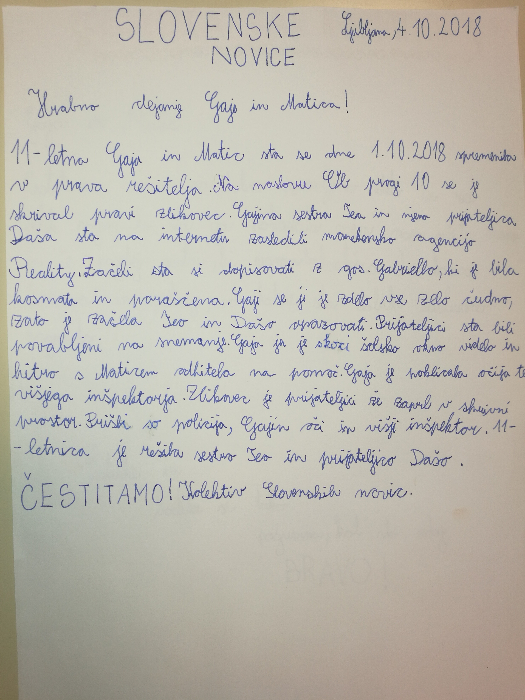 SLOVENSKE Ljubljana, 4.10.2018
NOVICE
Hrabno dejanje Gaje in Matica!
11-letna Gaja in Matic sta se dne 1.10.2018 spremenila
v prava rešitelja. Na naslovu Ob progi 10 se je
skrival pravi zlikovec. Gajina sestra Tea in njena prijateljica
Daša sta na internetu zasledili manekensko agencijo
Reality. Začeli sta si dopisovati z gos. Gabriello, ki je bila
kosmata in poraščena. Gaji se ji je zdelo vse zelo čudno,
zato je začela Teo in Dašo opazovati. Prijateljici sta bili
povabljeni na snemanje. Gaja ju je skozi šolsko okno videla in
hitro z Maticem odhitela na pomoč. Gaja je poklicala očija te
višjega inšpektorja. Zlikovec je prijateljici že zaprl v skrivni
prostor. Prišli so policija, Gajin oči in višji inšpektor. 11-
-letnica je rešila sestro Teo in prijateljico Dašo.
ČESTITAMO! Kolektiv Slovenskih novic.